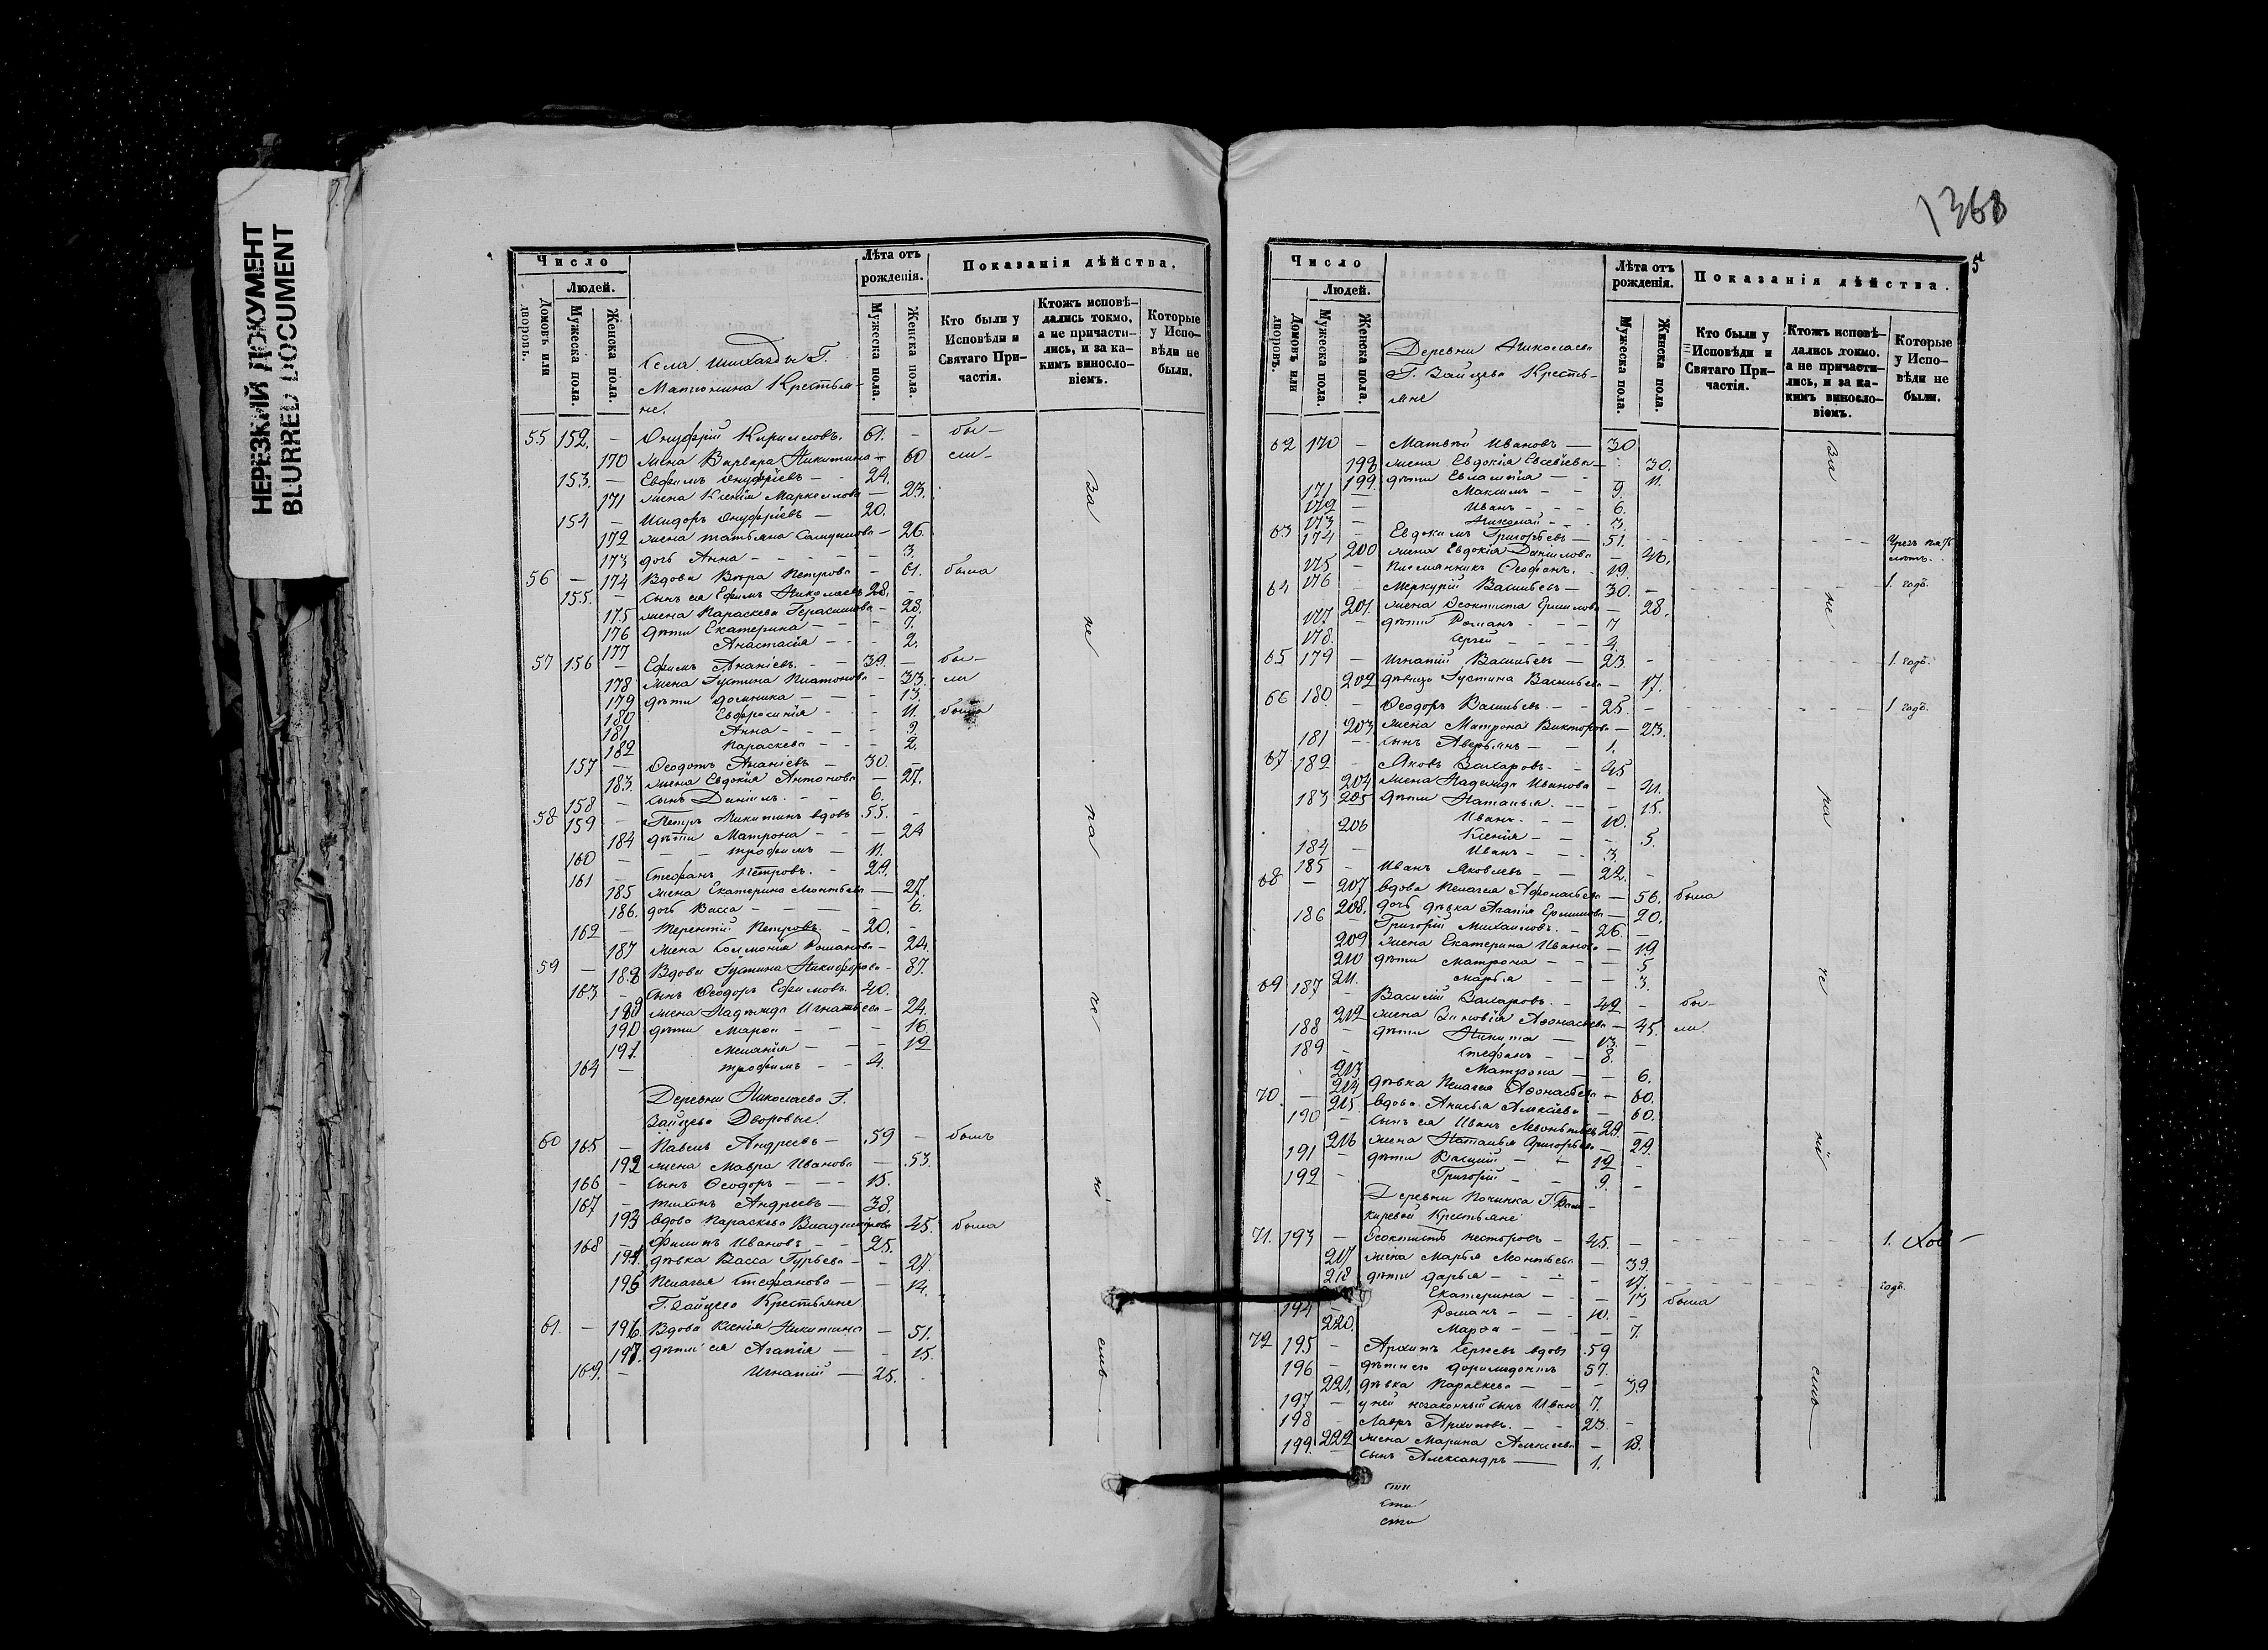 НЕРЕЗКИЙ ДОКУМЕНТ
BLURRED DOCUMENT
Число
Людей.
Домовъ или дворовъ.
Мужеска пола.
Женска пола.
Лѣта отъ рожденія.
Мужеска пола.
Женска пола.
Показанія дѣйства.
Кто были у Исповѣди и Святаго Причастія.
Ктожъ исповѣдались токмо, а не причастились, и за какимъ винословіемъ.
Которые у Исповѣди не были.
Села Г.
Матюнина Крестьяне.
55 152. — Онуфрій Кирилловъ. 61. — бы-
170 жена Варвара Никитина — 60 ли-
153. — Евфимъ Онуфріевъ — 24.
171 жена Ксенія Маркеллова — 23.
154 — Исидоръ Онуфріевъ — 20.
172 жена Татьяна — 26.
173 дочь Анна — 3.
56 — 174 Вдова Вѣра Петрова — 61. была
155. — сынъ ея Ефимъ Николаевъ 28. —
175 жена Параскева Герасимова — 28.
176 дѣти Екатерина — 7.
177 Анастасія — 2.
57 156 — Ефимъ Ананіевъ. — 39. — бы-
178 жена Густина Платонова — 33. ли
179 дѣти Домника — 13.
180 Евфросинія — 11. была
181 Анна — 3.
182 Параскева — 2.
157 — Ѳеодотъ Ананіевъ — 30. —
183. жена Евдокія Антонова — 27.
158 — сынъ Даніилъ. — 6.
58 159 — Петръ Никитинъ вдовъ 55. —
184 дѣти Матрона — 24
160 — Трофимъ — 11.
161 — Стефанъ Петровъ. — 29.
185 жена Екатерина Леонтьева — 27.
186. дочь Васса — 6.
162 — Терентій Петровъ. — 20. —
187 жена Романова — 24.
59 — 188 Вдова Густина Никифорова — 87.
163 — сынъ Ѳеодоръ Ефимовъ. 40.
189 жена Надежда Игнатьева — 24.
190 дѣти Марѳа — 16.
191. Меланія — 12
164 — Трофимъ — 4.
Деревни Николаева Г.
Зайцева Дворовые.
60 165 — Павелъ Андреевъ — 59 — былъ
192 жена Мавра Иванова — 53.
166 — сынъ Ѳеодоръ — 15.
167 — Тихонъ Андреевъ — 38.
193 вдова Параскева — 45. была
168 — Филипъ Ивановъ — 25.
194 дѣвка Васса Гурьева — 27.
195 Пелагея Стефанова — 14.
Г. Зайцева Крестьяне
61. — 196. Вдова Ксенія Никитина — 51.
197. дѣти ея Агапія — 15.
169. — Игнатій — 25.
за не ра че ні емъ
1368
5
Число
Людей.
Домовъ или дворовъ.
Мужеска пола.
Женска пола.
Лѣта отъ рожденія.
Мужеска пола.
Женска пола.
Показанія дѣйства.
Кто были у Исповѣди и Святаго Причастія.
Ктожъ исповѣдались токмо, а не причастились, и за какимъ винословіемъ.
Которые у Исповѣди не были.
Деревни Николаева
Г. Зайцева Крестьяне
62 170 — Матвѣй Ивановъ — 30
198 жена Евдокія Евсевіева — 30.
199. дѣти Евлампія — 11.
171 — Максимъ — 9.
172 — Иванъ — 6.
173 — Николай — 3.
63 174 — Евдокимъ Григорьевъ — 51.
200 жена Евдокія Данилова — 46.
175 — племянникъ Ѳеофанъ. 19.
64 176 Меркурій Васильевъ — 30. — 1. годъ.
201. жена Ѳеоктиста — 28.
177 — дѣти Романъ — 7
178. Сергей — 4.
65 179 — Игнатій Васильевъ — 23 — 1. годъ.
202 дѣвица Густина Васильева — 17.
66 180 — Ѳеодоръ Васильевъ. — 25. — 1 годъ.
203 жена Матрона Викторова — 23.
181 — сынъ Аверьянъ — 1.
67 182 — Яковъ Захаровъ. — 45
204 жена Надежда Иванова — 41.
183 205 дѣти Наталья. — 15.
Иванъ. — 10.
206 Ксенія — 5.
184 — Иванъ — 3.
185 — Иванъ Яковлевъ — 22. —
68 — 207 вдова Пелагея Афонасьева — 56. была
208. дочь дѣвка Агапія — 20.
186 — Григорій Михайловъ. — 26. —
209 жена Екатерина Иванова — 19
210 дѣти Матрона — 5
211. Марья — 3.
69 187 — Василій Захаровъ. — 49 — бы-
212 жена Зиновія Афонасьева — 45. ли.
188 — дѣти Никита — 13. —
189 — Стефанъ — 8.
213 Матрона — 6.
214 дѣвка Пелагея Афонасьева — 60.
70. — 215. вдова Анисья Алексіева — 60.
190 — сынъ ея Иванъ 29. —
216 жена Наталья Григорьева — 29.
191 — дѣти Василій — 12 —
192 — Григорій — 9. —
Деревни Починка Г. Баш-
киревой Крестьяне
71. 193 — Ѳеоктистъ Несторовъ — 45. — 1.
217 жена Марья Леонтьева — 39.
218 дѣти Дарья — 17. годъ.
Екатерина — 13 была
194 — Романъ — 10. —
220. Марѳа — 7.
72 195 — Архипъ Сергеевъ вдовъ 59
196 — дѣти его 57.
221. дѣвка Параскева — 39
197 — у ней незаконный сынъ Иванъ 7.
198 — Лавръ Архиповъ. — 23. —
222 жена Марина Алексеева — 18.
199. — сынъ Александръ — 1.
за не ра че ні емъ